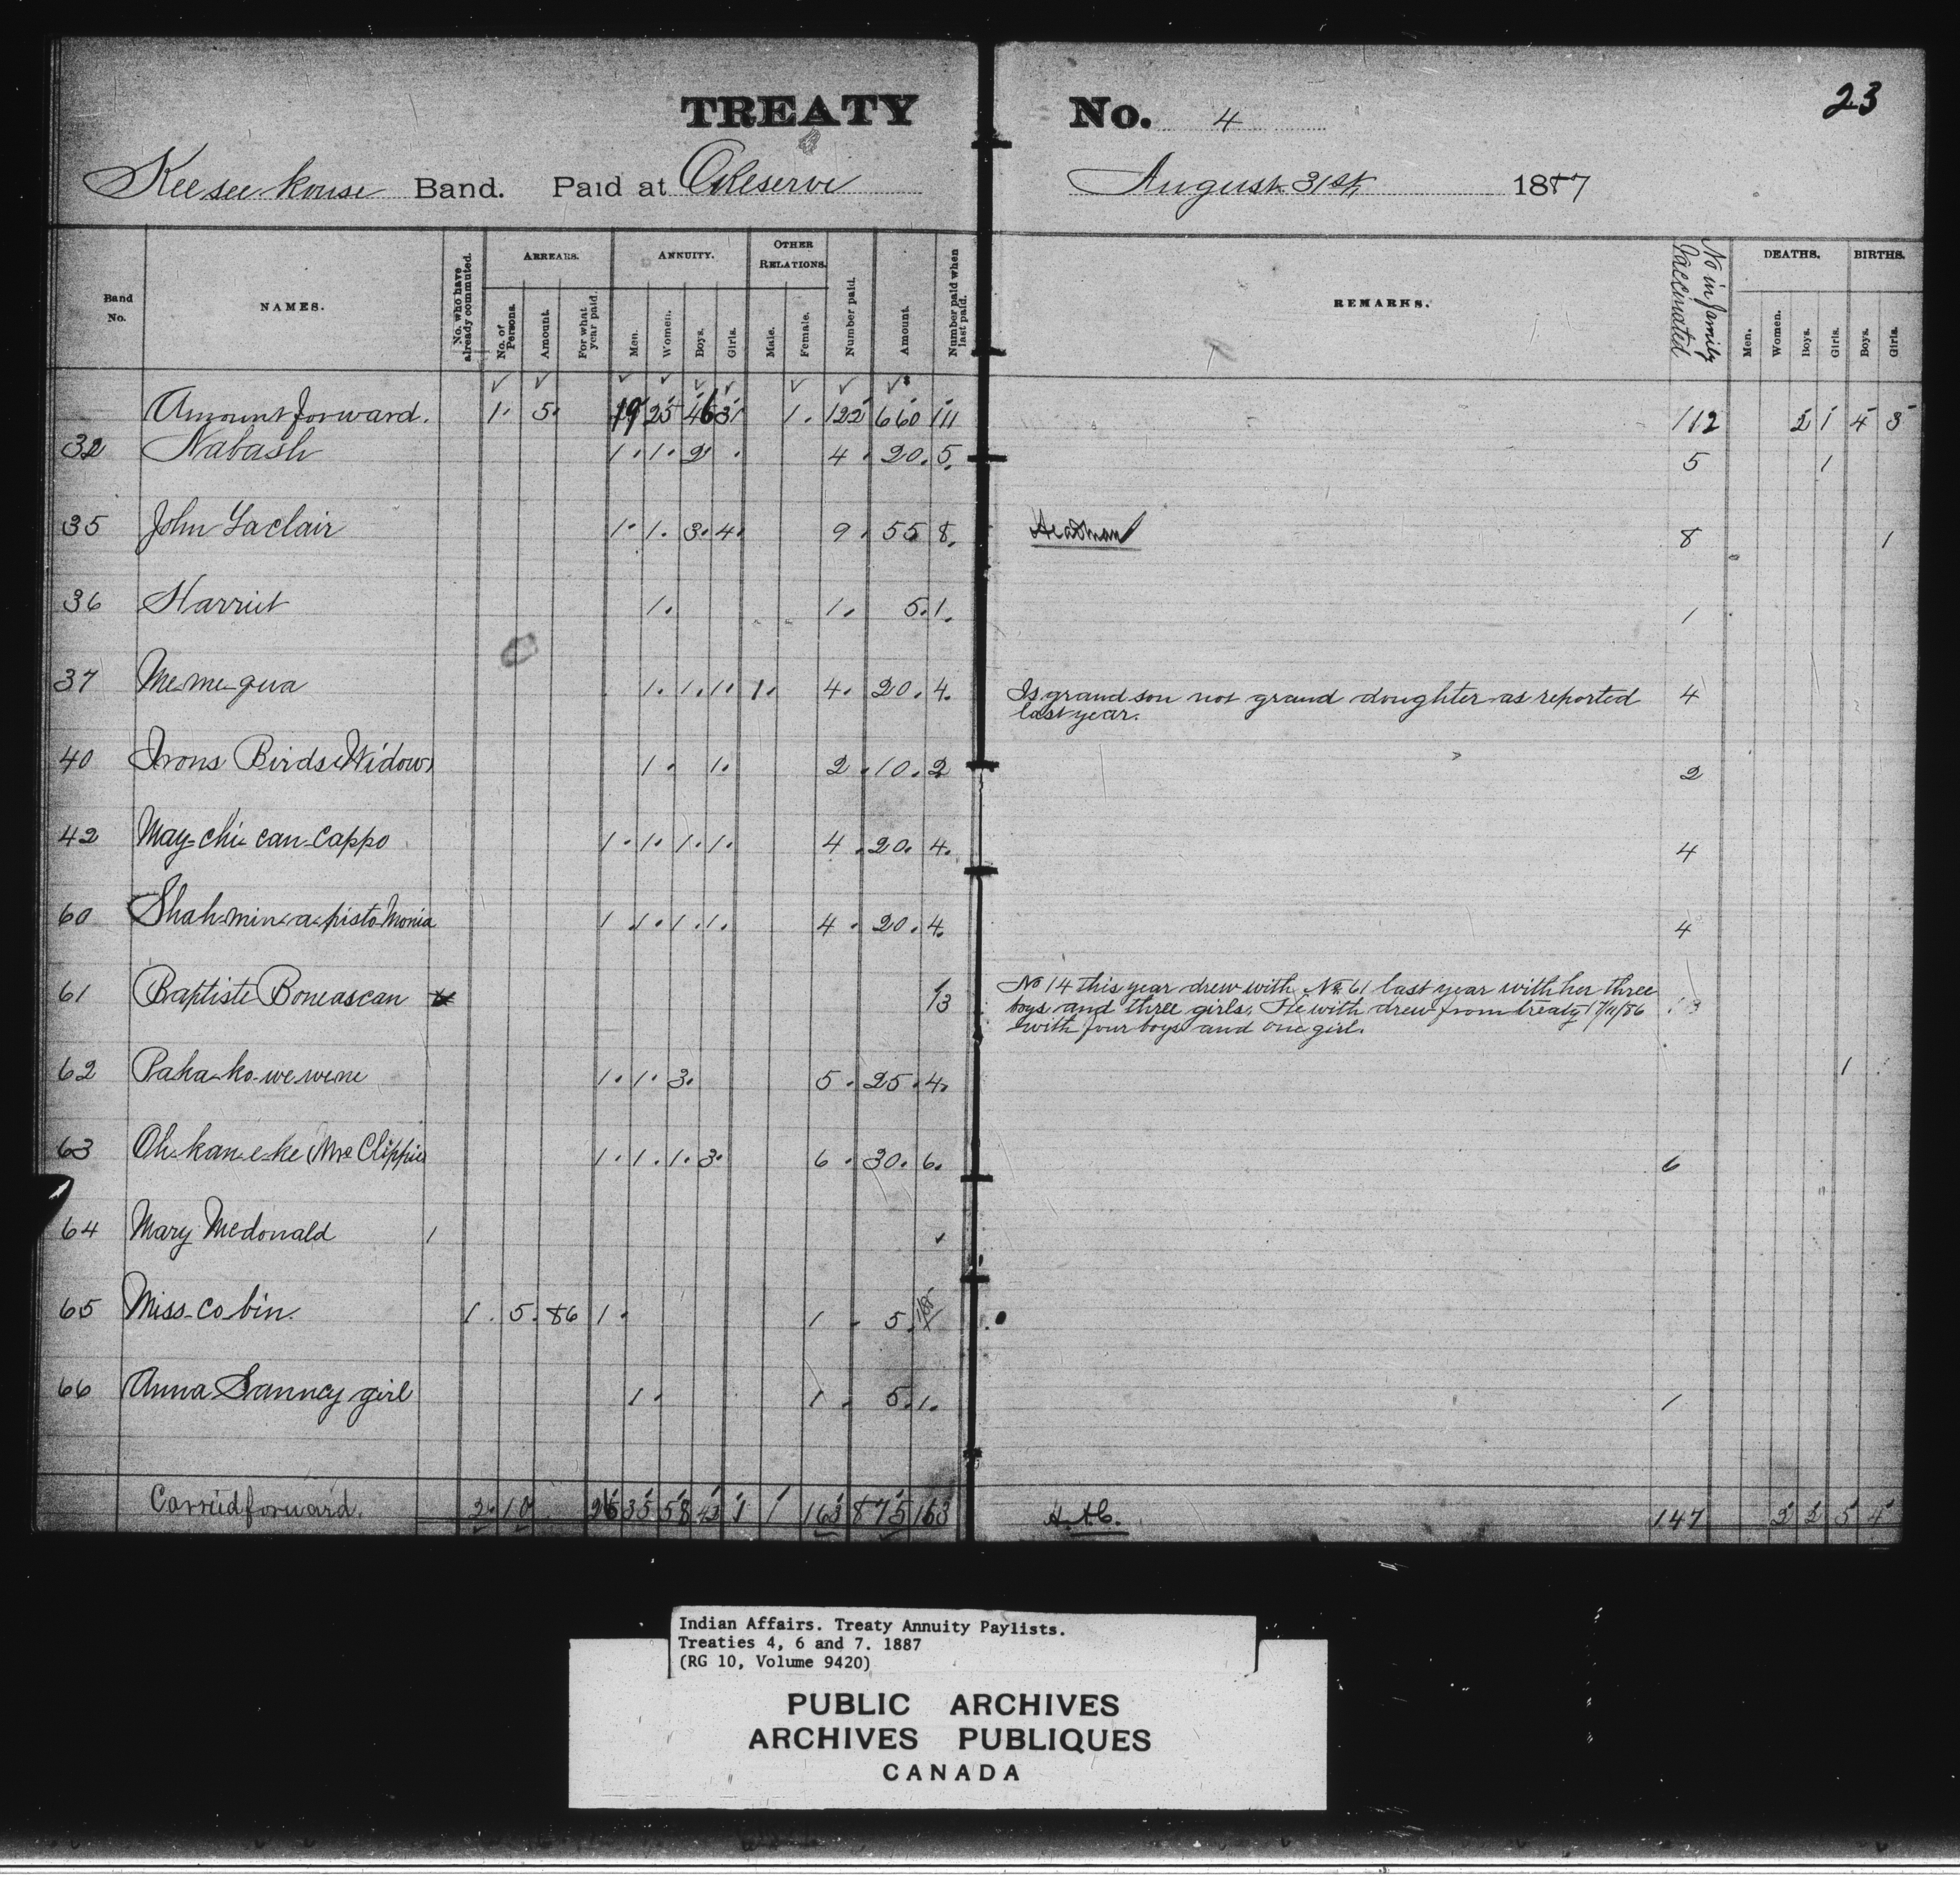 TREATY No. 4
23
Kee see kouse Band. Paid at Reserve August 31st 1887
Band No.
NAMES.
No. who have already commuted.
ARREARS.
No. of Persons.
Amount.
For what year paid.
ANNUITY.
Men.
Women.
Boys.
Girls.
OTHER RELATIONS.
Male.
Female.
Number paid.
Amount.
Number paid when last paid.
REMARKS.
No in family Vaccinated
DEATHS.
Men.
Women.
Boys.
Girls.
BIRTHS.
Boys.
Girls.
Amount forward. 1. 5. 19 25 46 31 1. 122 660 111 112 2 1 4 3
32 Nabash 1. 1. 2 . 4. 20. 5. 5 1
35 John Laclair 1. 1. 3. 4. 9. 55 8. Headman 8 1
36 Harriet 1. 1. 5. 1. 1
37 Me-me-gwa 1. 1. 1. 1. 4. 20. 4. Is grand son not grand doughter as reported 4
last year.
40 Irons Birds Widow 1. 1. 2. 10. 2 2
42 May-chi-can-cappo 1. 1. 1. 1. 4. 20. 4. 4
60 Shah-min-a-pisto Monia 1 1. 1. 1. 4. 20. 4. 4
61 Baptiste Boneascan 13 No 14 this year drew with No 61 last year with her three 13
boys and three girls. He with drew from treaty 17/11/86
with four boys and one girl.
62 Paka-ko-we-wene 1. 1. 3. 5. 25. 4. 1
63 Oh-kan-e-ke (Mrs Clippie) 1. 1. 1. 3. 6. 30. 6. 6
64 Mary Mcdonald 1
65 Miss-co-bin. 1. 5. 86 1. 1. 5. 1/85
66 Anna Sanncy girl 1. 1. 5. 1. 1
Carried forward. 2. 10 26 35 58 42 1 1 163 875 163 147 2 2 5 4
Indian Affairs. Treaty Annuity Paylists.
Treaties 4, 6 and 7. 1887
(RG 10, Volume 9420)
PUBLIC ARCHIVES
ARCHIVES PUBLIQUES
CANADA